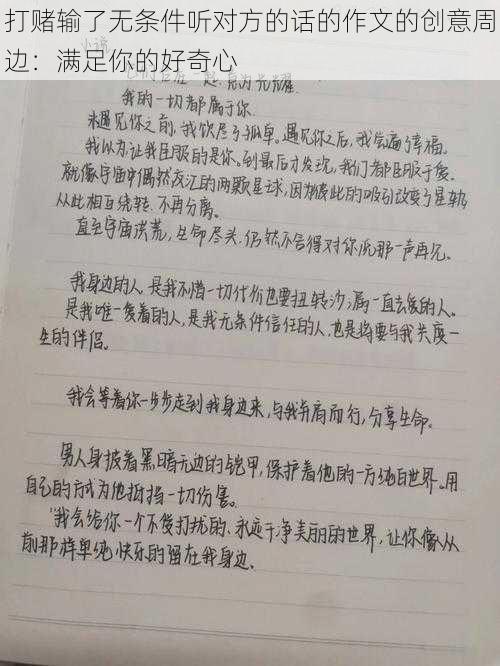 打赌输了无条件听对方的话的作文的创意周
边：满足你的好奇心
我的一切都属于你.
未遇见你之前,我饮尽了孤单。遇见你之后,我尝遍了幸福。
我以为让我臣服的是你。到最后才发现,我们都臣服于爱.
就像宇宙中偶然交汇的两颗星球,因为彼此的吸引改变了星轨
从此相互绕转.不再分离。
直至宇宙洪荒,生命尽头.仍然不舍得对你说那一声再见。
我身边的人.是我不惜一切代价也要扭转沙漏一直去爱的人。
是我唯一爱着的人,是我无条件信任的人.也是将要与我共度一
生的伴侣。
我会等着你一步步走到我身边来,与我并肩而行,分享生命.
男人身披着黑暗无边的铠甲,保护着他的一方纯白世界.用
自己的方式为他抵挡一切伤害。
"我会给你一个不受打扰的.永远干净美丽的世界,让你像从
前那样单纯快乐的留在我身边.